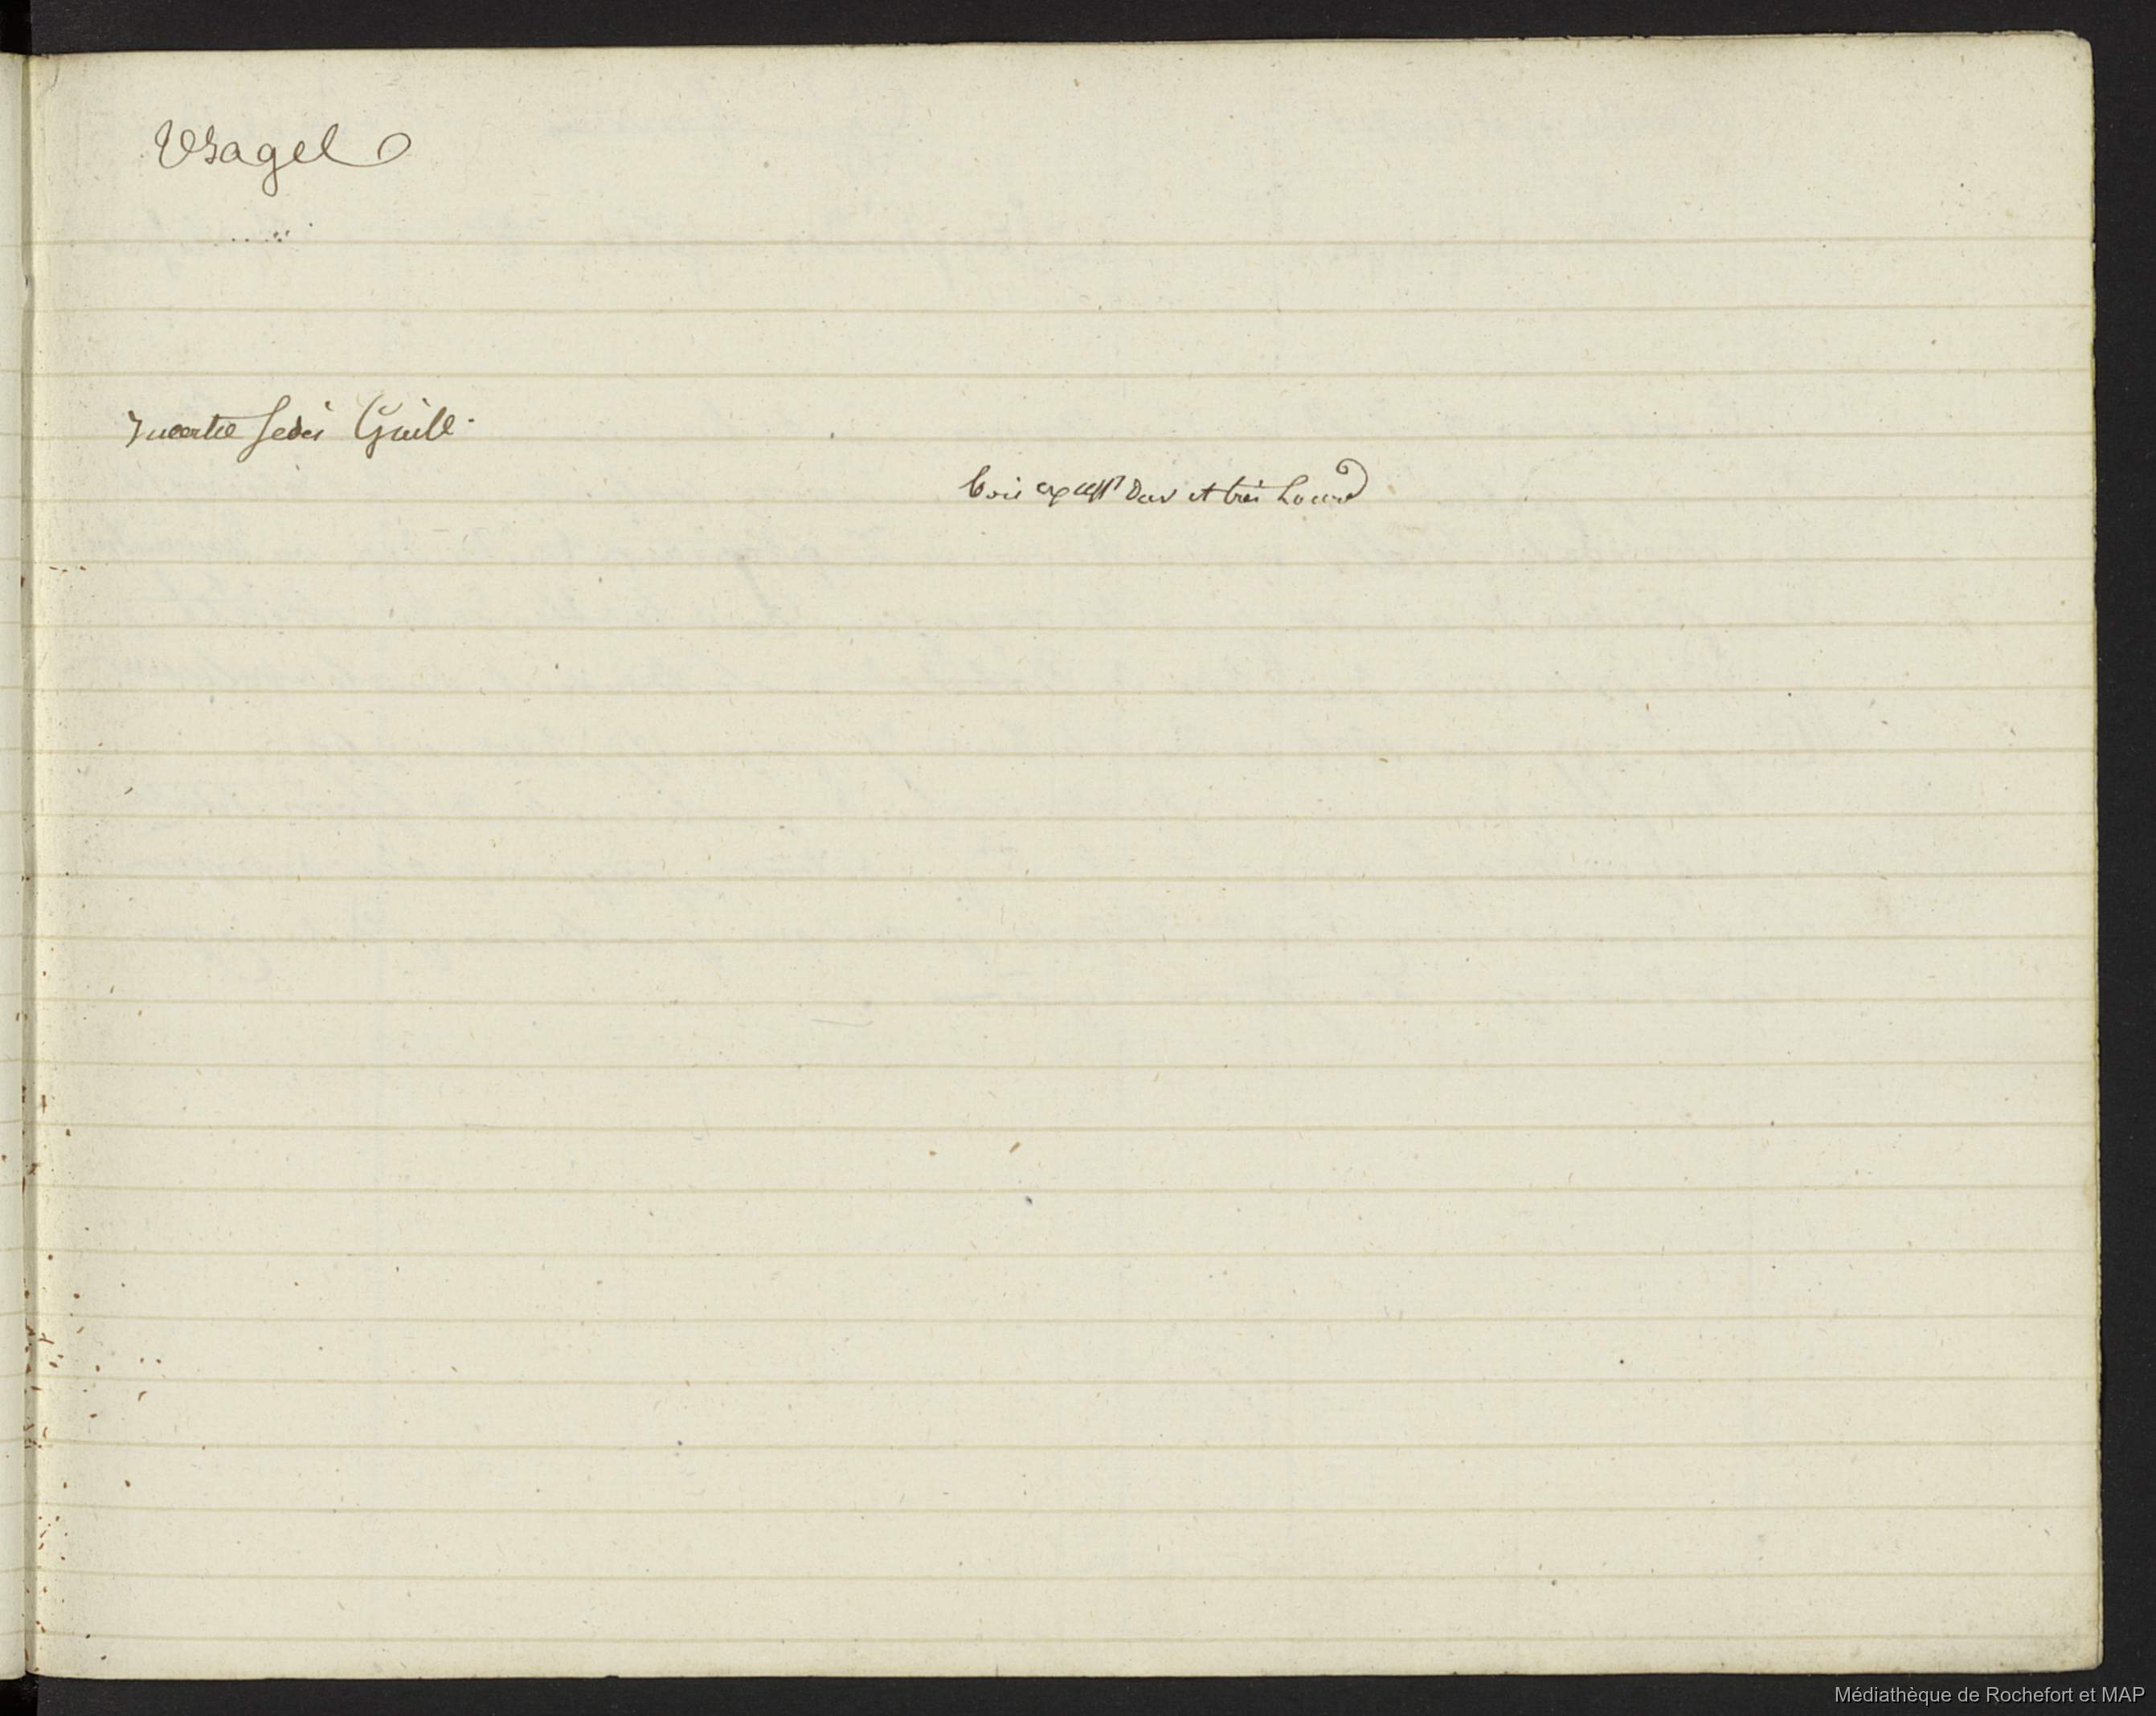 Usages
Incertæ sedis Guill.
bois excesst dur et très lourd
Médiathèque de Rochefort et MAP